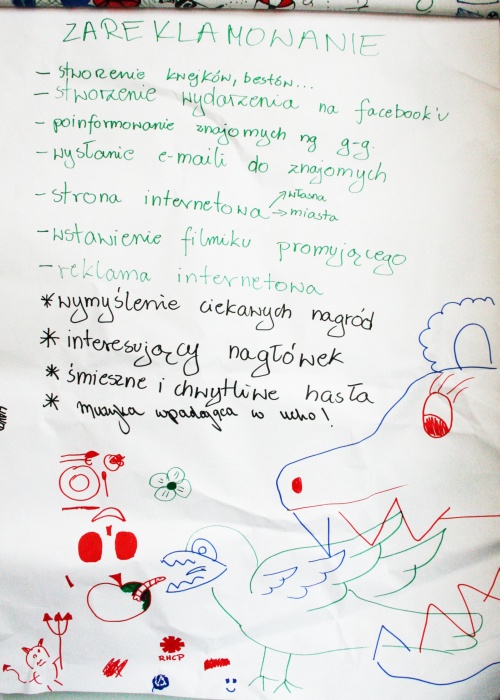 ZAREKLAMOWANIE
- stworzenie kwejków, bestów...
- stworzenie wydarzenia na facebook'u
- poinformowanie znajomych na g-g.
- wysłanie e-maili do znajomych
- strona internetowa → własna
→ miasta
- wstawienie filmiku promującego
- reklama internetowa
* wymyślenie ciekawych nagród
* interesujący nagłówek
* śmieszne i chwytliwe hasła
* muzyka wpadająca w ucho!
RHCP